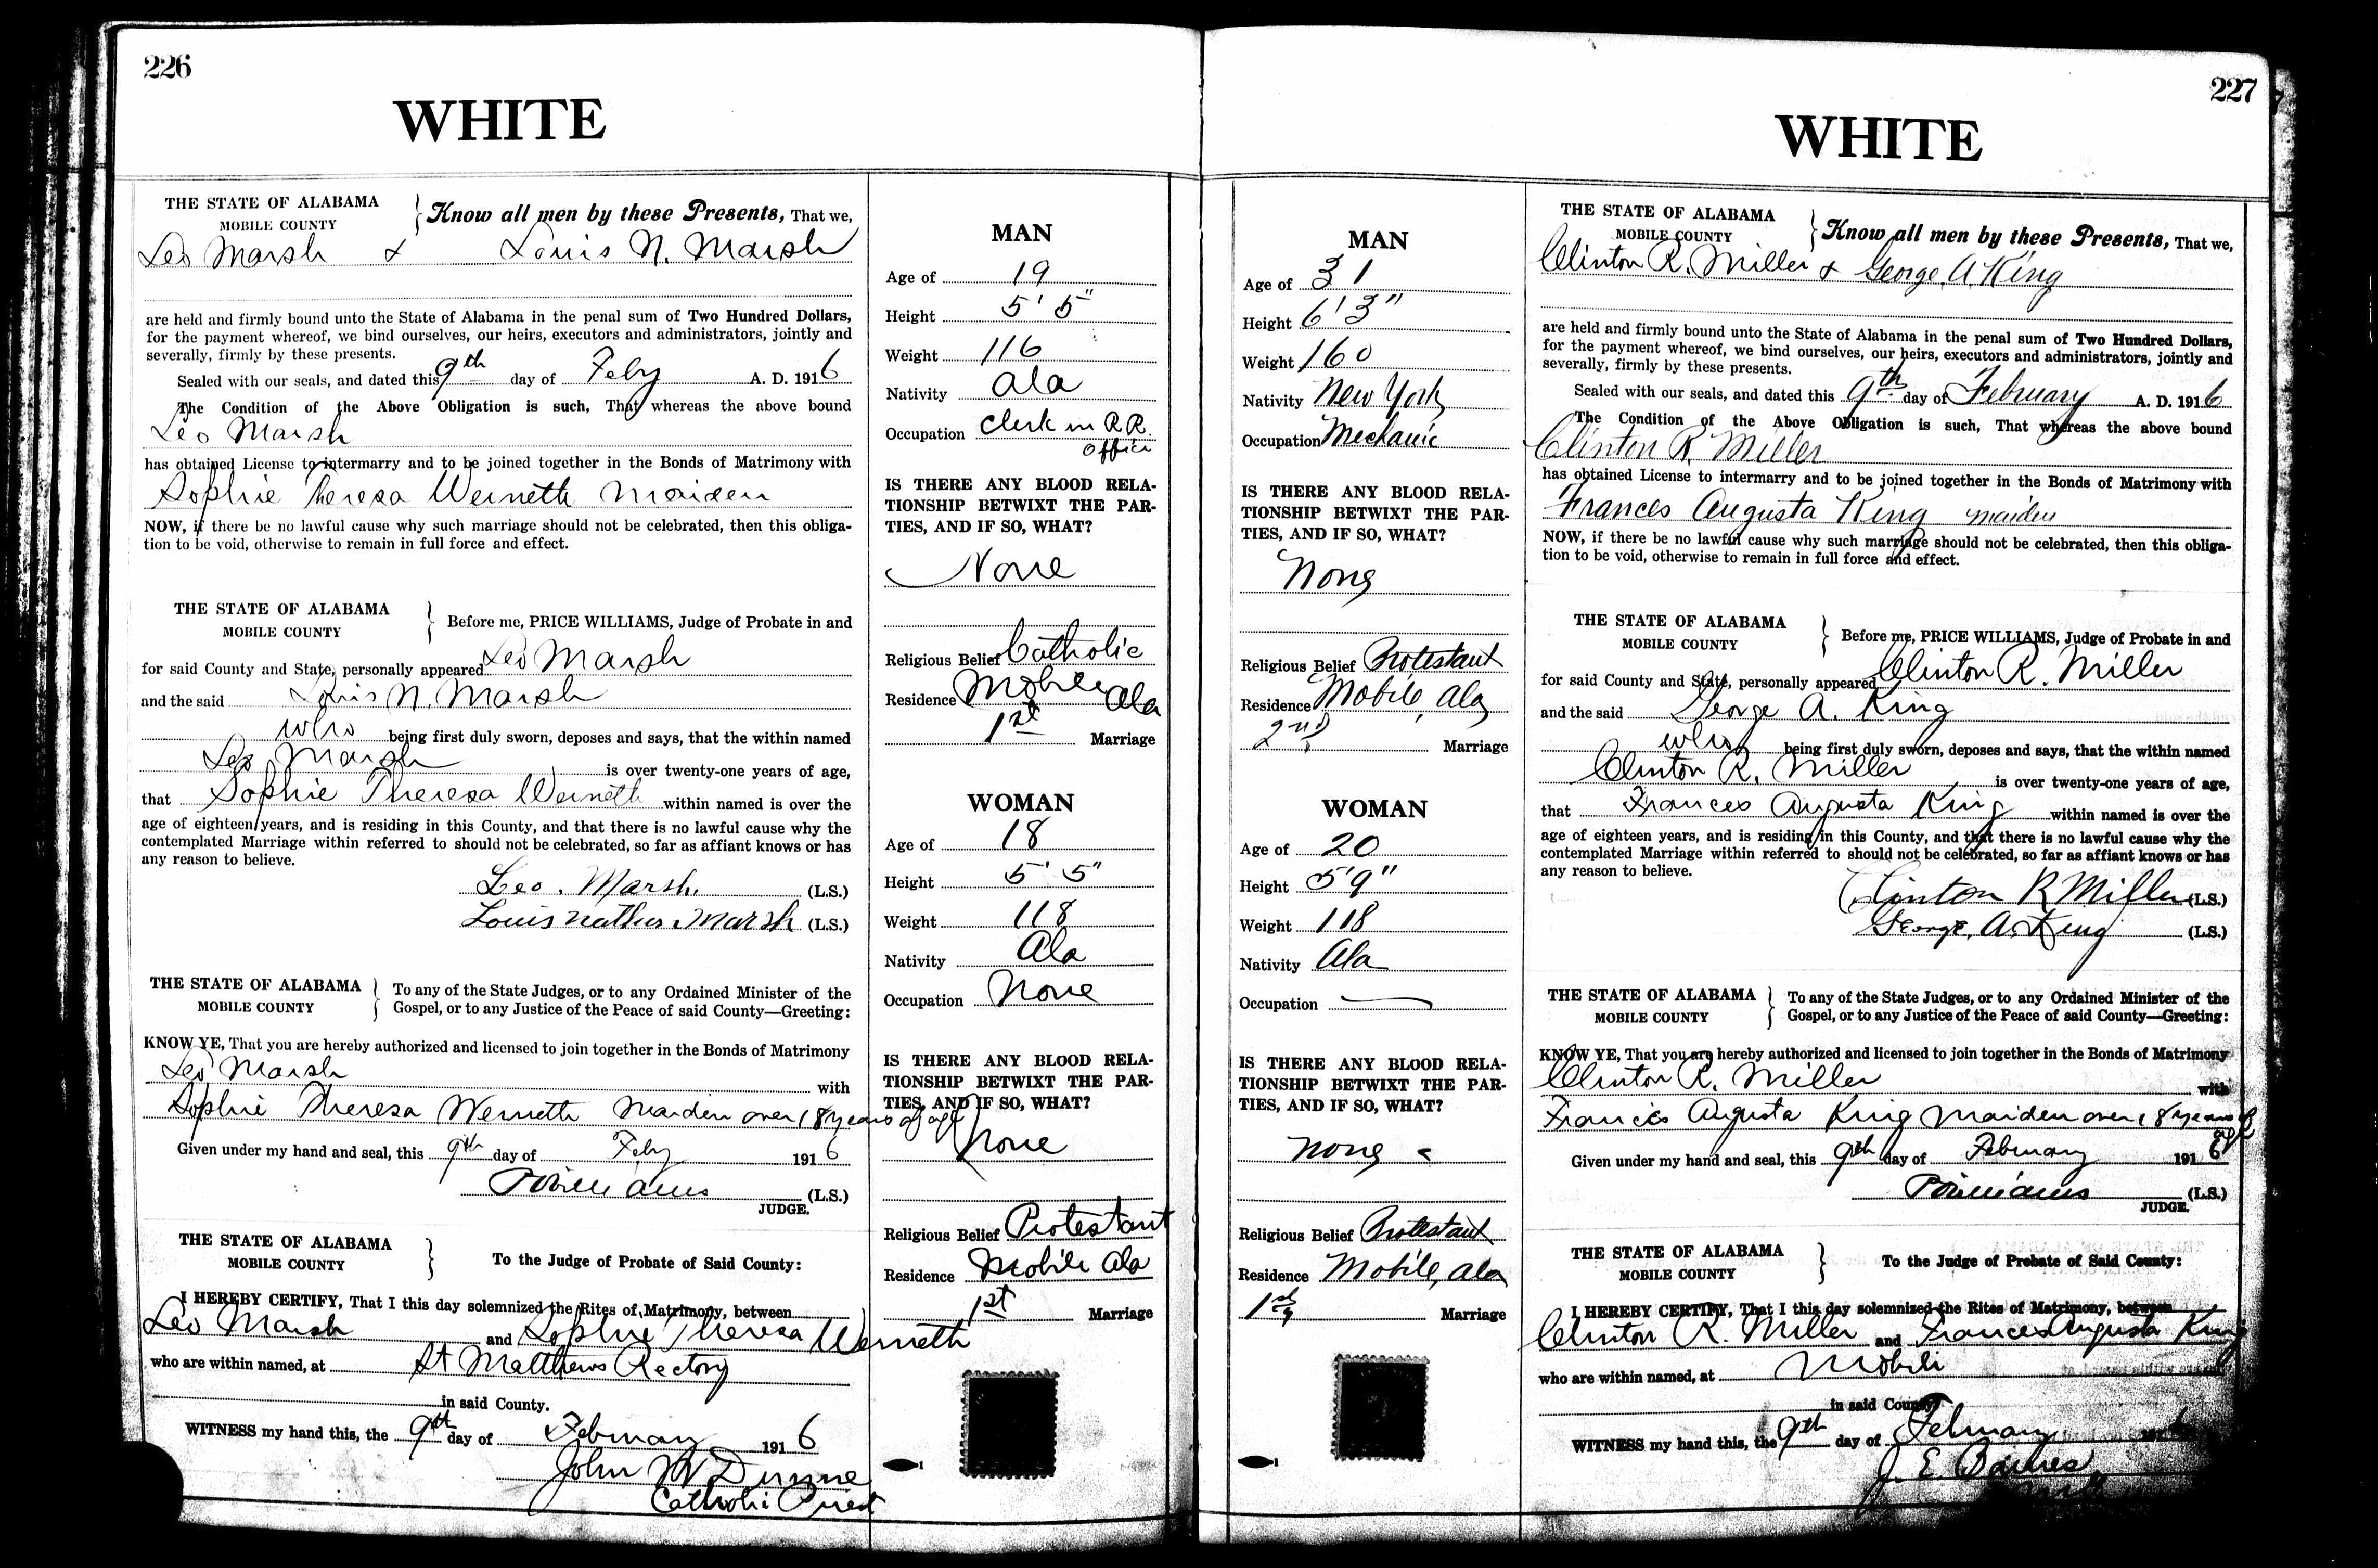 226
WHITE
THE STATE OF ALABAMA
MOBILE COUNTY
Know all men by these Presents, That we,
Leo Marsh & Louis N. Marsh
are held and firmly bound unto the State of Alabama in the penal sum of Two Hundred Dollars,
for the payment whereof, we bind ourselves, our heirs, executors and administrators, jointly and
severally, firmly by these presents.
Sealed with our seals, and dated this 9th day of Feby A. D. 1916
The Condition of the Above Obligation is such, That whereas the above bound
Leo Marsh
has obtained License to intermarry and to be joined together in the Bonds of Matrimony with
Sophie Theresa Werneth Maiden
NOW, if there be no lawful cause why such marriage should not be celebrated, then this obliga-
tion to be void, otherwise to remain in full force and effect.
THE STATE OF ALABAMA
MOBILE COUNTY
Before me, PRICE WILLIAMS, Judge of Probate in and
for said County and State, personally appeared Leo Marsh
and the said Louis N. Marsh
who being first duly sworn, deposes and says, that the within named
Leo Marsh is over twenty-one years of age,
that Sophie Theresa Werneth within named is over the
age of eighteen years, and is residing in this County, and that there is no lawful cause why the
contemplated Marriage within referred to should not be celebrated, so far as affiant knows or has
any reason to believe.
Leo. Marsh. (L.S.)
Louis Marsh (L.S.)
THE STATE OF ALABAMA
MOBILE COUNTY
To any of the State Judges, or to any Ordained Minister of the
Gospel, or to any Justice of the Peace of said County—Greeting:
KNOW YE, That you are hereby authorized and licensed to join together in the Bonds of Matrimony
Leo Marsh with
Sophie Theresa Werneth Maiden over 18 years of age
Given under my hand and seal, this 9th day of Feby 1916
PWilliams (L.S.)
JUDGE.
THE STATE OF ALABAMA
MOBILE COUNTY
To the Judge of Probate of Said County:
I HEREBY CERTIFY, That I this day solemnized the Rites of Matrimony, between
Leo Marsh and Sophie Theresa Werneth
who are within named, at St Matthews Rectory
in said County.
WITNESS my hand this, the 9th day of February 1916
John W Dunne
Catholic Priest
MAN
Age of 19
Height 5' 5"
Weight 116
Nativity Ala
Occupation Clerk in RR.
Office
IS THERE ANY BLOOD RELA-
TIONSHIP BETWIXT THE PAR-
TIES, AND IF SO, WHAT?
None
Religious Belief Catholic
Residence Mobile Ala
1st Marriage
WOMAN
Age of 18
Height 5' 5"
Weight 118
Nativity Ala
Occupation None
IS THERE ANY BLOOD RELA-
TIONSHIP BETWIXT THE PAR-
TIES, AND IF SO, WHAT?
None
Religious Belief Protestant
Residence Mobile Ala
1st Marriage
1
227
WHITE
MAN
Age of 31
Height 6'3"
Weight 160
Nativity New York
Occupation Mechanic
IS THERE ANY BLOOD RELA-
TIONSHIP BETWIXT THE PAR-
TIES, AND IF SO, WHAT?
None
Religious Belief Protestant
Residence Mobile, Ala
2nd Marriage
WOMAN
Age of 20
Height 5'9"
Weight 118
Nativity Ala
Occupation —
IS THERE ANY BLOOD RELA-
TIONSHIP BETWIXT THE PAR-
TIES, AND IF SO, WHAT?
None
Religious Belief Protestant
Residence Mobile, Ala
1st Marriage
1
THE STATE OF ALABAMA
MOBILE COUNTY
Know all men by these Presents, That we,
Clinton R. Miller & George A. King
are held and firmly bound unto the State of Alabama in the penal sum of Two Hundred Dollars,
for the payment whereof, we bind ourselves, our heirs, executors and administrators, jointly and
severally, firmly by these presents.
Sealed with our seals, and dated this 9th day of February A. D. 1916
The Condition of the Above Obligation is such, That whereas the above bound
Clinton R. Miller
has obtained License to intermarry and to be joined together in the Bonds of Matrimony with
Frances Augusta King maiden
NOW, if there be no lawful cause why such marriage should not be celebrated, then this obliga-
tion to be void, otherwise to remain in full force and effect.
THE STATE OF ALABAMA
MOBILE COUNTY
Before me, PRICE WILLIAMS, Judge of Probate in and
for said County and State, personally appeared Clinton R. Miller
and the said George A. King
who being first duly sworn, deposes and says, that the within named
Clinton R. Miller is over twenty-one years of age,
that Frances Augusta King within named is over the
age of eighteen years, and is residing in this County, and that there is no lawful cause why the
contemplated Marriage within referred to should not be celebrated, so far as affiant knows or has
any reason to believe.
Clinton R Miller (L.S.)
George. A. King (L.S.)
THE STATE OF ALABAMA
MOBILE COUNTY
To any of the State Judges, or to any Ordained Minister of the
Gospel, or to any Justice of the Peace of said County—Greeting:
KNOW YE, That you are hereby authorized and licensed to join together in the Bonds of Matrimony
Clinton R. Miller with
Frances Augusta King Maiden over 18 years of
age
Given under my hand and seal, this 9th day of February 1916
PWilliams (L.S.)
JUDGE.
THE STATE OF ALABAMA
MOBILE COUNTY
To the Judge of Probate of Said County:
I HEREBY CERTIFY, That I this day solemnized the Rites of Matrimony, between
Clinton R. Miller and Frances Augusta King
who are within named, at Mobile
in said County
WITNESS my hand this, the 9th day of February 191
J. E. Barnes